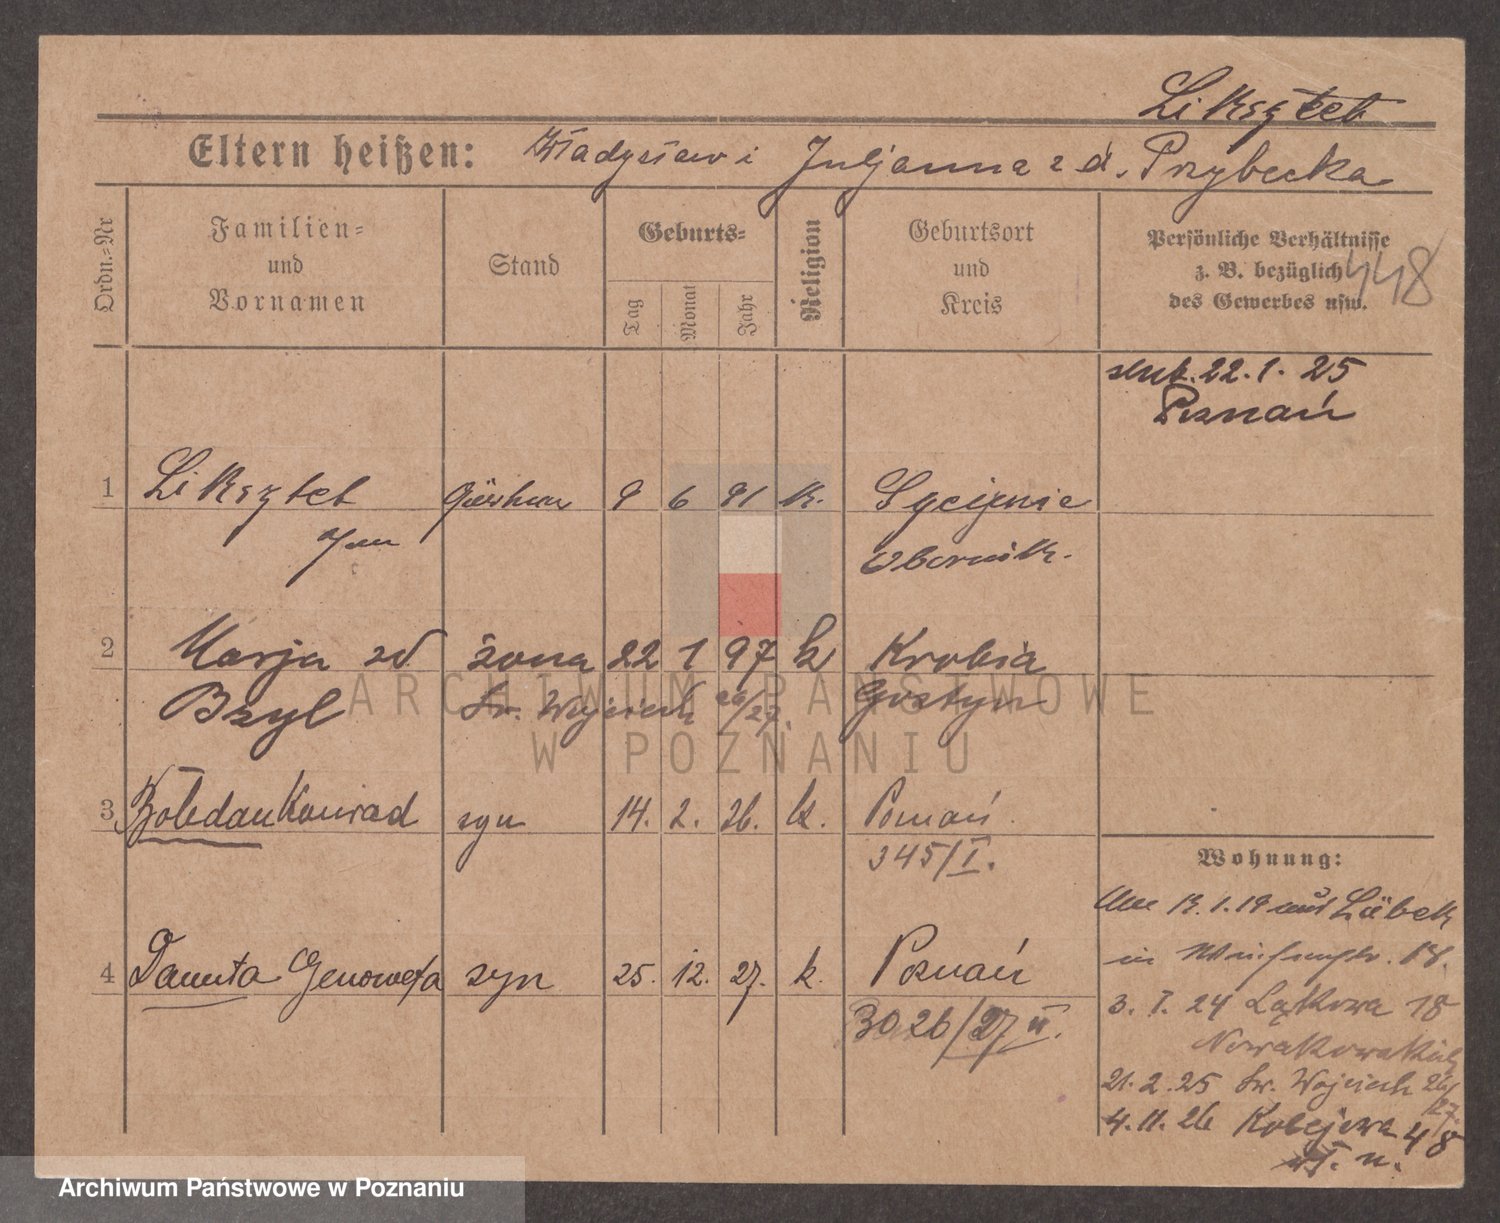 Liksztet
Eltern heißen: Władysław i Juljanna z d. Przybecka
Ordn.-Nr
Familien-
und
Vornamen
Stand
Geburts-
Tag
Monat
Jahr
Religion
Geburtsort
und
Kreis
Persönliche Verhältnisse
z. B. bezüglich
des Gewerbes usw.
448
ślub. 22.1.25
Poznań
1 Liksztet 9 6 91 k.
Jan
Obornik.
2 Marja zd żona 22 1 97 k Krobia
Bzyl Św. Wojciech 26/27. Gostyn
3 Bohdan Konrad syn 14. 2. 26. k. Poznań.
345/I.
Wohnung:
13.1.19 aus Lübek
in
4 Danuta Genowefa syn 25. 12. 27. k. Poznań
3026/27 II.
3. I. 24 Łąkowa 18
21.2.25 Św. Wojciech 26/27.
4.11.26 Kolejowa 48
ARCHIWUM PAŃSTWOWE
W POZNANIU
Archiwum Państwowe w Poznaniu